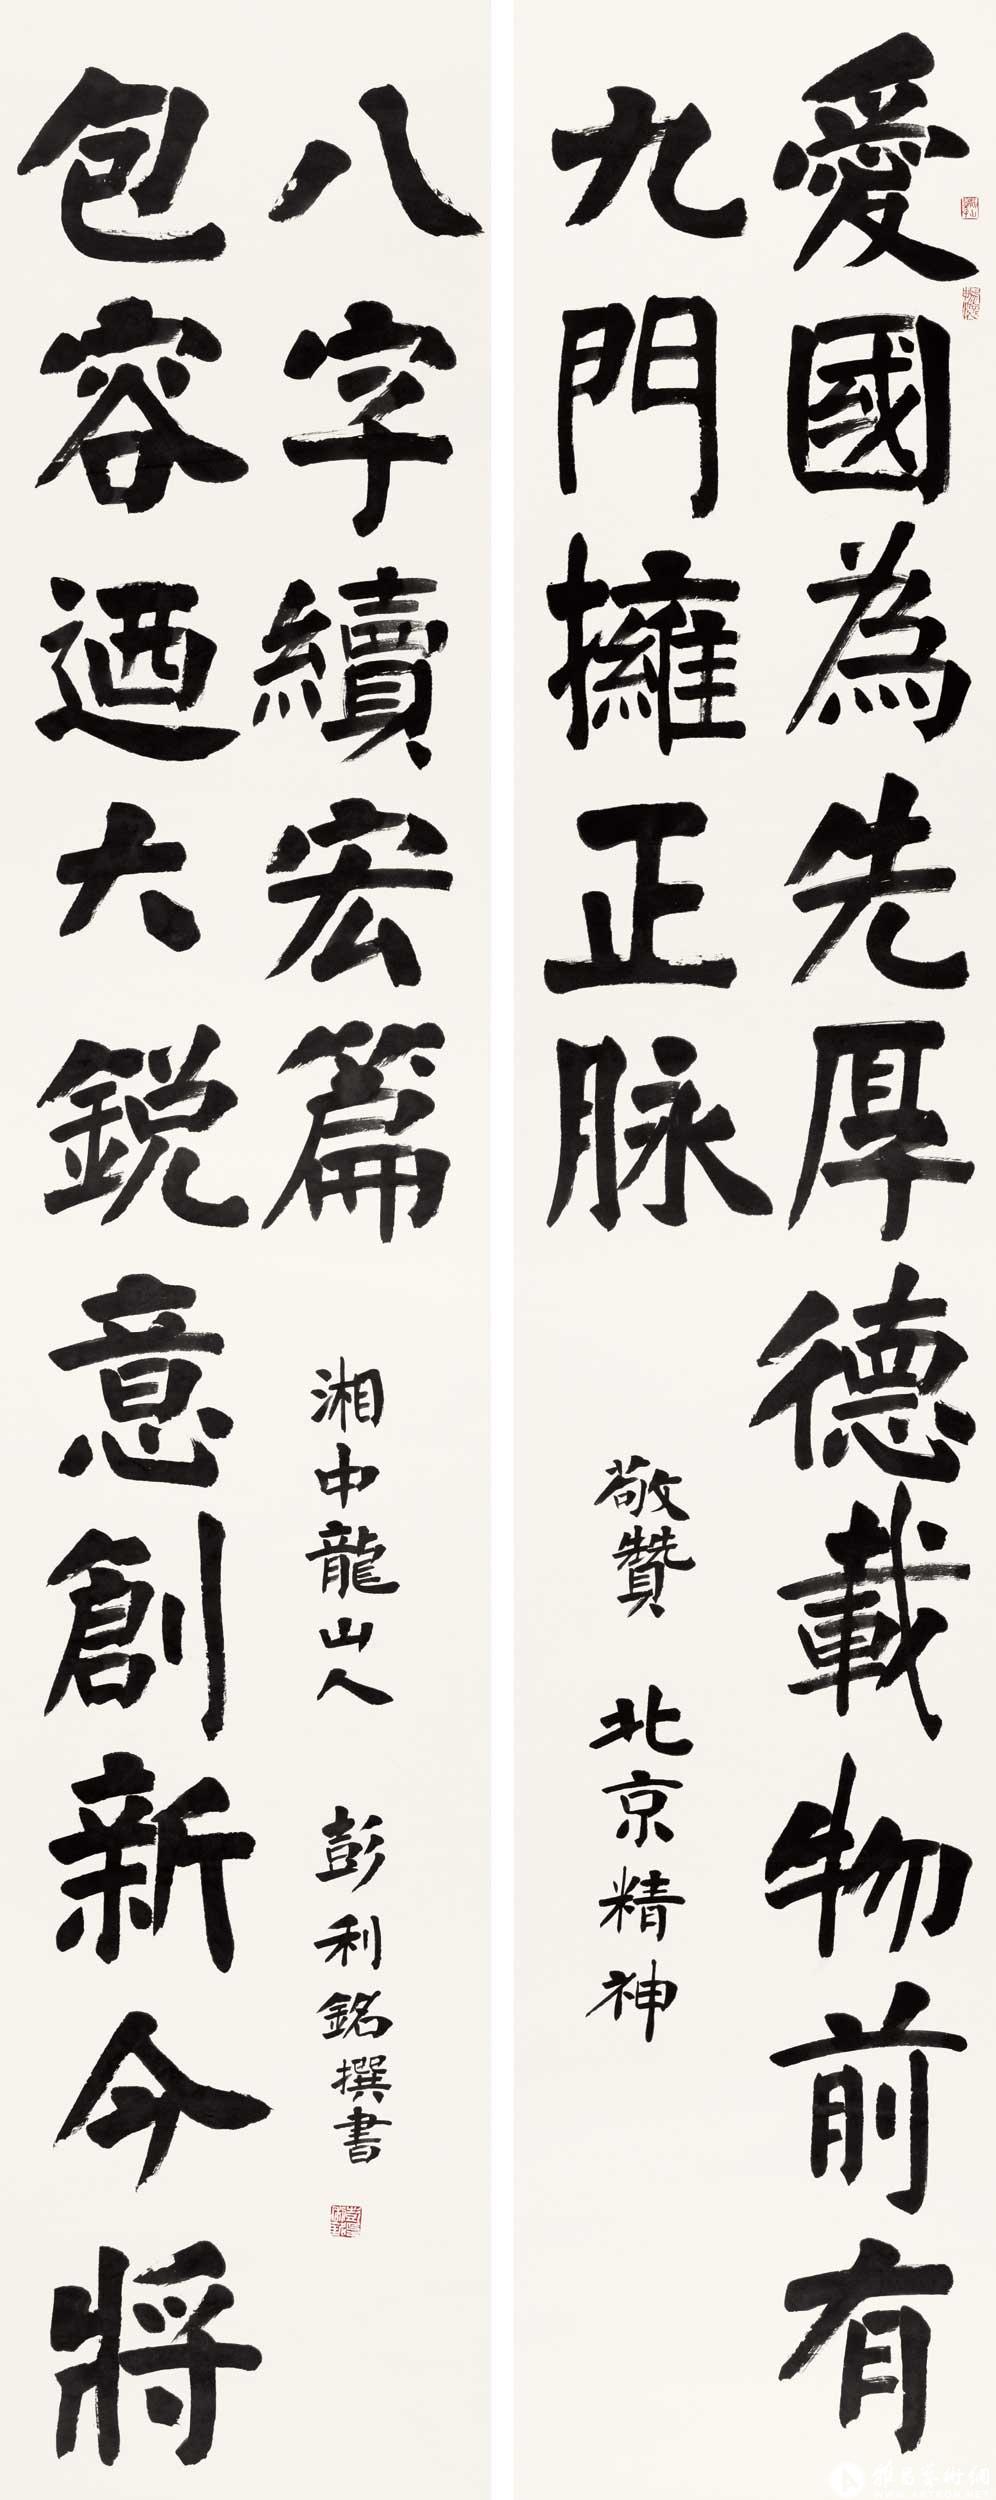 愛國為先厚德載物前有
九門擁正脉
敬贊 北京精神
包容迺大鋭意創新今將
八字續宏篇
湘中龍山人 彭利銘撰書
雅昌藝術網